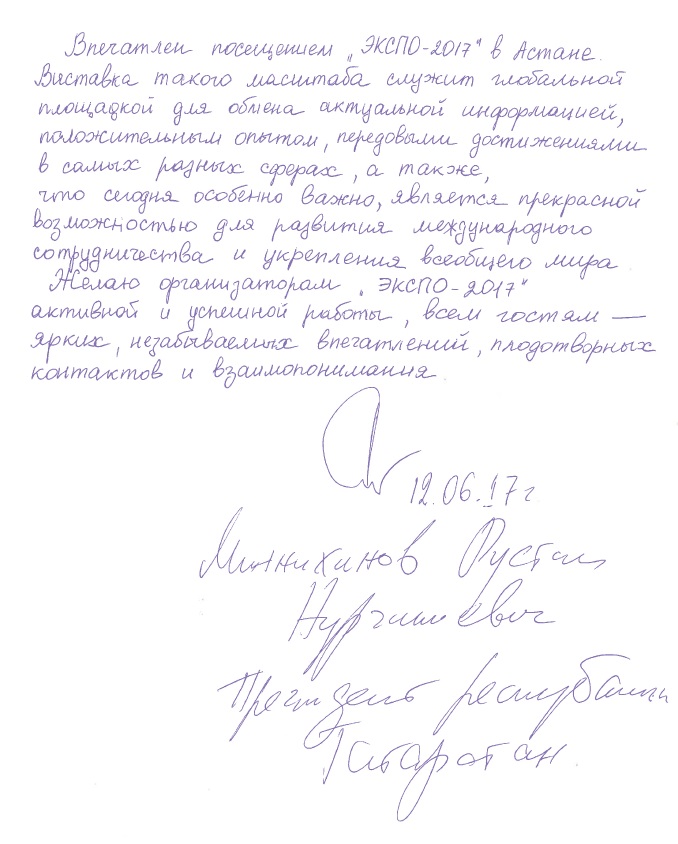 Впечатлен посещением „ЭКСПО-2017" в Астане.
Выставка такого масштаба служит глобальной
площадкой для обмена актуальной информацией,
положительным опытом, передовыми достижениями
в самых разных сферах, а также,
что сегодня особенно важно, является прекрасной
возможностью для развития международного
сотрудничества и укрепления всеобщего мира.
Желаю организаторам „ЭКСПО-2017"
активной и успешной работы, всем гостям —
ярких, незабываемых впечатлений, плодотворных
контактов и взаимопонимания.
12.06.17г
Минниханов Рустам
Нургалиевич
Президент республики
Татарстан.